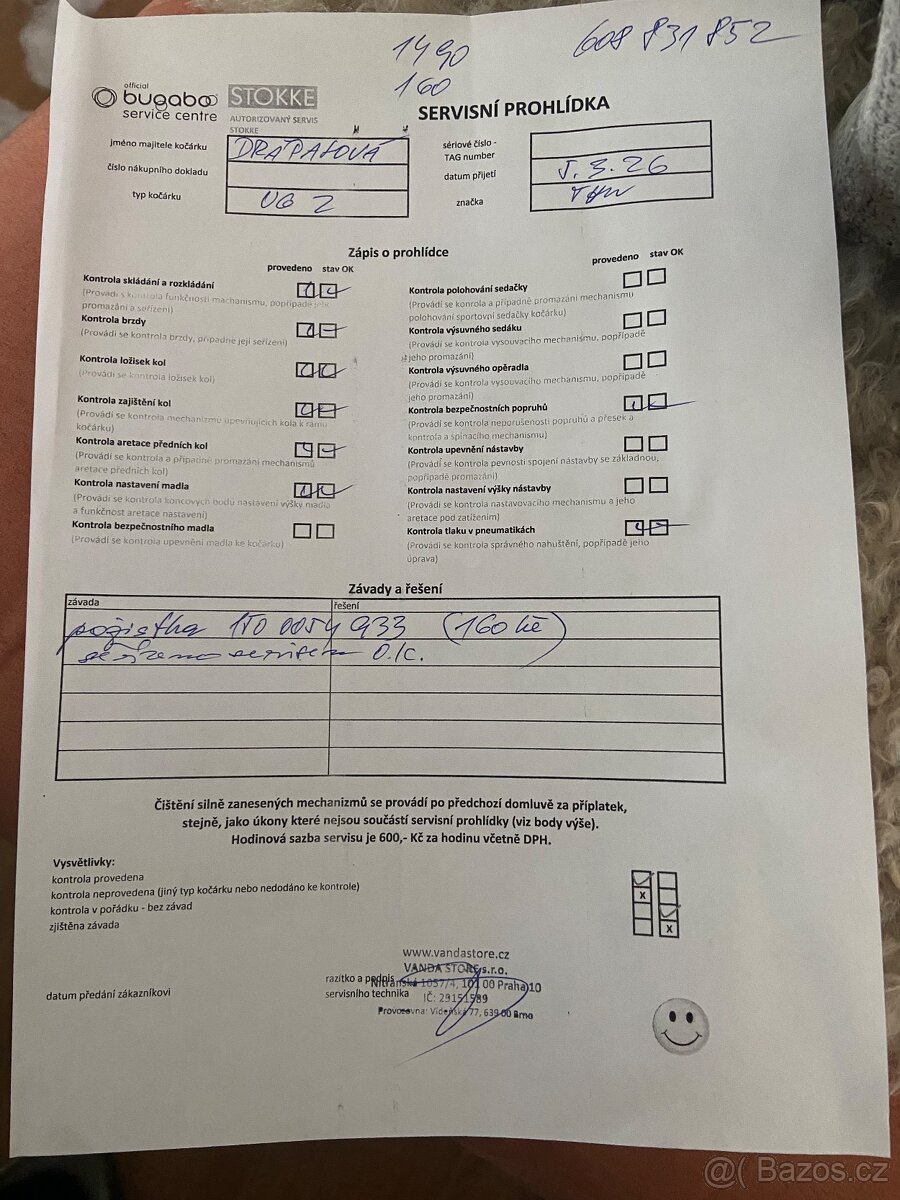 1490
608 831 852
160
official
bugaboo
service centre
STOKKE
AUTORIZOVANÝ SERVIS
STOKKE
SERVISNÍ PROHLÍDKA
jméno majitele kočárku
DRÁPALOVÁ
číslo nákupního dokladu
typ kočárku
sériové číslo -
TAG number
datum přijetí
5.3.26
značka
Zápis o prohlídce
provedeno stav OK
Kontrola skládání a rozkládání
(Provádí s kontrola funkčnosti mechanismu, popřípadě jeho
promazání a seřízení)
Kontrola brzdy
(Provádí se kontrola brzdy, případně její seřízení)
Kontrola ložisek kol
(Provádí se kontrola ložisek kol)
Kontrola zajištění kol
(Provádí se kontrola mechanizmu upevňujících kola k rámu
kočárku)
Kontrola aretace předních kol
(Provádí se kontrola a případné promazání mechanismů
aretace předních kol)
Kontrola nastavení madla
(Provádí se kontrola koncových bodů nastavení výšky madla
a funkčnost aretace nastavení)
Kontrola bezpečnostního madla
(Provádí se kontrola upevnění madla ke kočárku)
provedeno stav OK
Kontrola polohování sedačky
(Provádí se konrola a případné promazání mechanismu
polohování sportovní sedačky kočárku)
Kontrola výsuvného sedáku
(Provádí se kontrola vysouvacího mechanismu, popřípadě
jeho promazání)
Kontrola výsuvného opěradla
(Provádí se kontrola vysouvacího mechanismu, popřípadě
jeho promazání)
Kontrola bezpečnostních popruhů
(Provádí se kontrola neporušenosti popruhů a přesek a
kontrola a spínacího mechanismu)
Kontrola upevnění nástavby
(Provádí se kontrola pevnosti spojení nástavby se základnou,
popřípadě promazání)
Kontrola nastavení výšky nástavby
(Provádí se kontrola nastavovacího mechanismu a jeho
aretace pod zatížením)
Kontrola tlaku v pneumatikách
(Provádí se kontrola správného nahuštění, popřípadě jeho
úprava)
Závady a řešení
závada řešení
pojistka 150 0054 933 (160 kč)
seřízeno O.K.
Čištění silně zanesených mechanizmů se provádí po předchozí domluvě za příplatek,
stejně, jako úkony které nejsou součástí servisní prohlídky (viz body výše).
Hodinová sazba servisu je 600,- Kč za hodinu včetně DPH.
Vysvětlivky:
kontrola provedena
kontrola neprovedena (jiný typ kočárku nebo nedodáno ke kontrole)
x
kontrola v pořádku - bez závad
zjištěna závada
x
www.vandastore.cz
VANDA STORE s.r.o.
Nitranská 1057/4, 101 00 Praha 10
IČ: 29151589
Provozovna: Vídeňská 77, 639 00 Brno
razítko a podpis
servisního technika
datum předání zákazníkovi
@( Bazos.cz